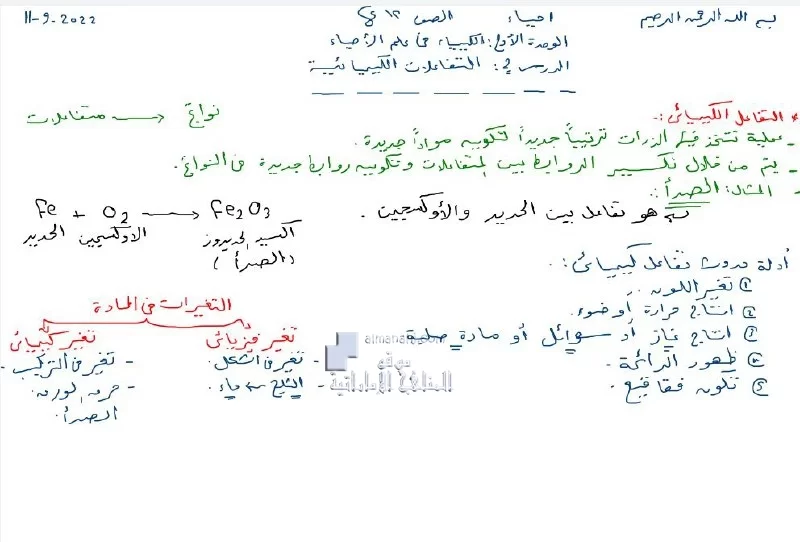 بسم الله الرحمن الرحيم احياء الصف ١٢ ع 11-9-2022
الوحدة الأولى: الكيمياء في علم الأحياء
الدرس 2: التفاعلات الكيميائية
* التفاعل الكيميائي:-
متفاعلات ⟶ نواتج
- عملية تتخذ فيها الذرات ترتيباً جديداً لتكوين مواداً جديدة.
- يتم من خلال تكسير الروابط بين المتفاعلات وتكوين روابط جديدة في النواتج.
- المثال: الصدأ:
هو تفاعل بين الحديد والأوكسجين.
Fe + O2 ⟶ Fe2O3
الحديد الاوكسجين اكسيد الحديدوز
(الصدأ)
أدلة حدوث تفاعل كيميائي:
① تغير اللون
② انتاج حرارة أو ضوء.
③ انتاج غاز أو سوائل أو مادة صلبة
④ ظهور الرائحة.
⑤ تكون فقاقيع.
التغيرات في المادة
تغير فيزيائي
- تغير في الشكل
- الثلج ⟶ ماء.
تغير كيميائي
- تغير في التركيب
- حرق الورق.
الصدأ.
almanahj.com
موقع
المناهج الإماراتية